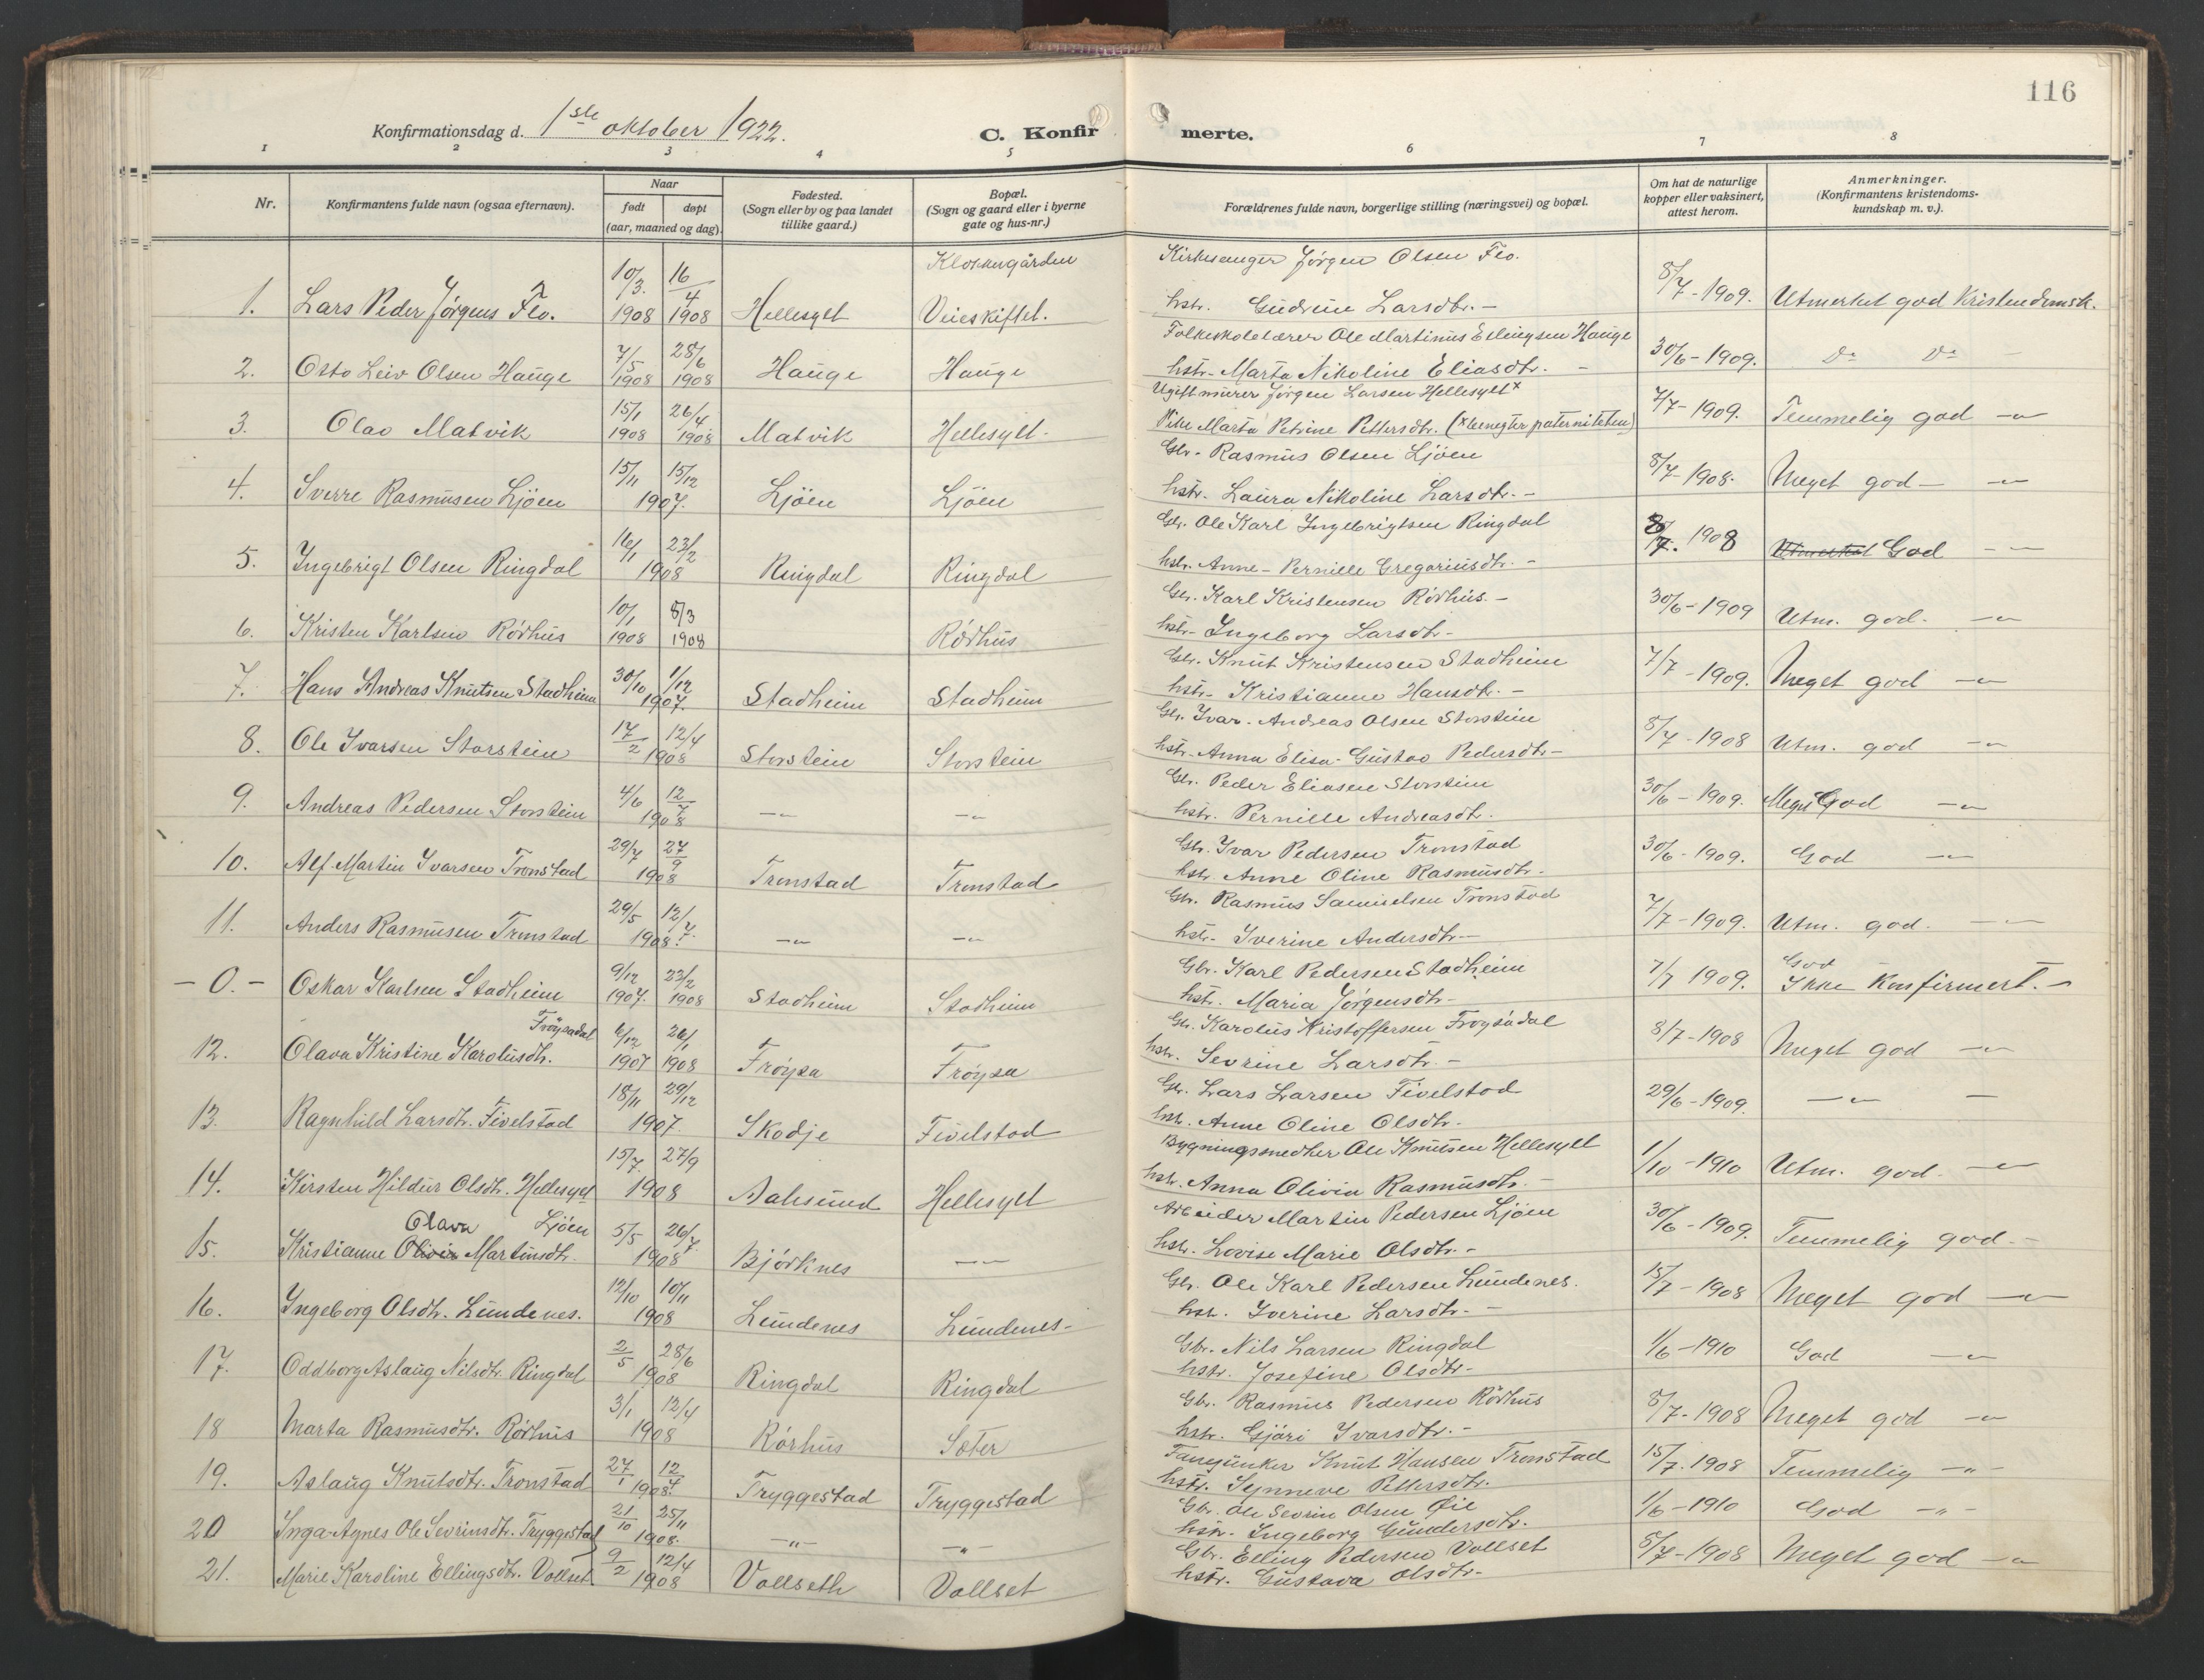 116
Konfirmationsdag d. 1ste oktober 1922.
C. Konfirmerte.
1 2 3 4 5 6 7 8
Nr.
Konfirmantens fulde navn (ogsaa efternavn).
Naar
født døpt
(aar, maaned og dag).
Fødested.
(Sogn eller by og paa landet
tillike gaard.)
Bopæl.
(Sogn og gaard eller i byerne
gate og hus-nr.)
Forældrenes fulde navn, borgerlige stilling (næringsvei) og bopæl.
Om hat de naturlige
kopper eller vaksinert,
attest herom.
Anmerkninger.
(Konfirmantens kristendoms-
kundskap m. v.).
Klokkergården Kirkesanger Jörgen Olsen Flo.
1. Lars Peder Jörgens Flo. 10/3. 1908 16/4 1908 Hellesylt hstr. Gudrun Larsdtr. - 8/7 - 1909. Utmerket god Kristendomsk.
Folkeskolelærer Ole Martinus Ellingsen Hauge
2. Otto Leiv Olsen Hauge 7/5 1908 28/6 1908 Hauge Hauge hstr. Marta Nikoline Eliasdtr. - 30/6 - 1909. Do Do -
Ugift murer Jörgen Larsen Hellesylt x
3. Olav Matvik 15/1 1908 26/4 1908 Matvik Hellesylt. Pike Marta Petrine Pettersdtr. (x benegter paterniteten) 7/7 - 1909. Temmelig god -"-
Gbr. Rasmus Olsen Ljöen
4. Sverre Rasmusen Ljöen 15/11 15/12 1907. Ljöen Ljöen hstr. Laura Nikoline Larsdtr. - 8/7 - 1908. Meget god - -"-
Gbr. Ole Karl Ingebrigtsen Ringdal
5. Ingebrigt Olsen Ringdal 16/1 23/2 1908 Ringdal Ringdal hstr. Anne-Pernille Gregoriusdtr. - 8/7. 1908 Utmerket God -"-
Gbr. Karl Kristensen Rödhus. -
6. Kristen Karlsen Rödhus 10/1 1908 8/3 1908 Rödhus hstr. Ingeborg Larsdtr. - 30/6 - 1909 Utm. god. -"-
Gbr. Knut Kristensen Stadheim
7. Hans Andreas Knutsen Stadheim 30/10 1/12 1907. Stadheim Stadheim hstr. Kristianne Hansdtr. - 7/7 - 1909. Meget god -"-
Gbr. Ivar. Andreas Olsen Storstein
8. Ole Ivarsen Storstein 17/2 12/4 1908 Storstein Storstein hstr. Anna Elisa-Gustav Pedersdtr. - 8/7 - 1908 Utm. god -"-
Gbr. Peder Eliasen Storstein
9. Andreas Pedersen Storstein 4/6 12/7 1908 -"- -"- hstr. Pernille Andreasdtr. 30/6 - 1909. Meget God -"-
Gbr. Ivar Pedersen Tronstad
10. Alf Martin Ivarsen Tronstad 29/7 27/9 1908 Tronstad Tronstad hstr. Anne Oline Rasmusdtr. 30/6 - 1909. God -"-
Gbr. Rasmus Samuelsen Tronstad
11. Anders Rasmusen Tronstad 29/5 12/7. 1908. -"- -"- hstr. Iverine Andersdtr. - 7/7 - 1909. Utm. god. -"-
Gbr. Karl Pedersen Stadheim God
- 0. - Oskar Karlsen Stadheim 9/12 1907. 23/2 1908 Stadheim Stadheim hstr. Maria Jörgensdtr. - 7/7 1909. Ikke Konfirmert. -
Fröysadal Gbr. Karolus Kristoffersen Fröysadal
12. Olava Kristine Karolusdtr. 6/12 1907 26/1 1908 Fröysa Fröysa hstr. Sevrine Larsdtr. - 8/7 - 1908 Meget god -"-
Gbr. Lars Larsen Fivelstad
13. Ragnhild Larsdtr. Fivelstad 18/11 29/12 1907. Skodje Fivelstad hstr. Anne Oline Olsdtr. 29/6 - 1909. -"- -
Bygningssnedker Ole Knutsen Hellesylt
14. Kirsten Hildur Olsdtr. Hellesylt 15/7. 27/9 1908 Aalesund Hellesylt hstr. Anna Olivia Rasmusdtr. - 1/10 - 1910 Utm. god. -"-
Olava Ljöen Arbeider Martin Pedersen Ljöen
15. Kristianne Olivia Martinsdtr. 5/5 26/7. 1908 Björknes -"- hstr. Lovise Marie Olsdtr. - 30/6 - 1909. Temmelig god. -
Gbr. Ole Karl Pedersen Lundenes.
16. Ingeborg Olsdtr. Lundenes. 12/10 10/11 1908 Lundenes Lundenes - hstr. Iverine Larsdtr. - 15/7 - 1908 Meget god -"-
Gbr. Nils Larsen Ringdal
17. Oddborg Aslaug Nilsdtr. Ringdal 2/5 28/6 1908 Ringdal Ringdal hstr. Josefine Olsdtr. - 1/6 - 1910 God -"-
Gbr. Rasmus Pedersen Rödhus
18 Marta Rasmusdtr. Rörhus 3/1 12/4 1908 Rörhus Sæter hstr. Gjöri Ivarsdtr. - 8/7 - 1908 Meget god -"-
Knut Hansen Tronstad
19. Aslaug Knutsdtr. Tronstad 27/1 12/4 1908. Tryggestad Tryggestad hstr. Synneve Pettersdtr. 15/7. 1908 Temmelig -"-
Gbr. Ole Sevrin Olsen Øie
20 Inga-Agnes Ole Sevrinsdtr. Tryggestad 21/10 25/11 1908. -"- -"- hstr. Ingeborg Gundersdtr. 1/6 - 1910 God -"-
Gbr. Elling Pedersen Vollset
21. Marie Karoline Ellingsdtr. Vollset 9/2 12/4 1908 Vollseth Vollset hstr. Gustava Olsdtr. - 8/7 - 1908 Meget god -"-